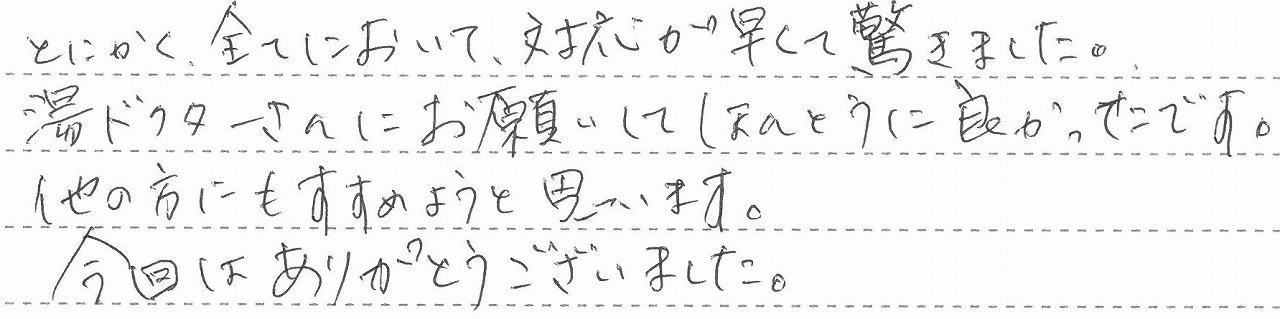 とにかく、全てにおいて、対応が早くて驚きました。
湯ドクターさんにお願いしてほんとうに良かったです。
他の方にもすすめようと思います。
今回はありがとうございました。